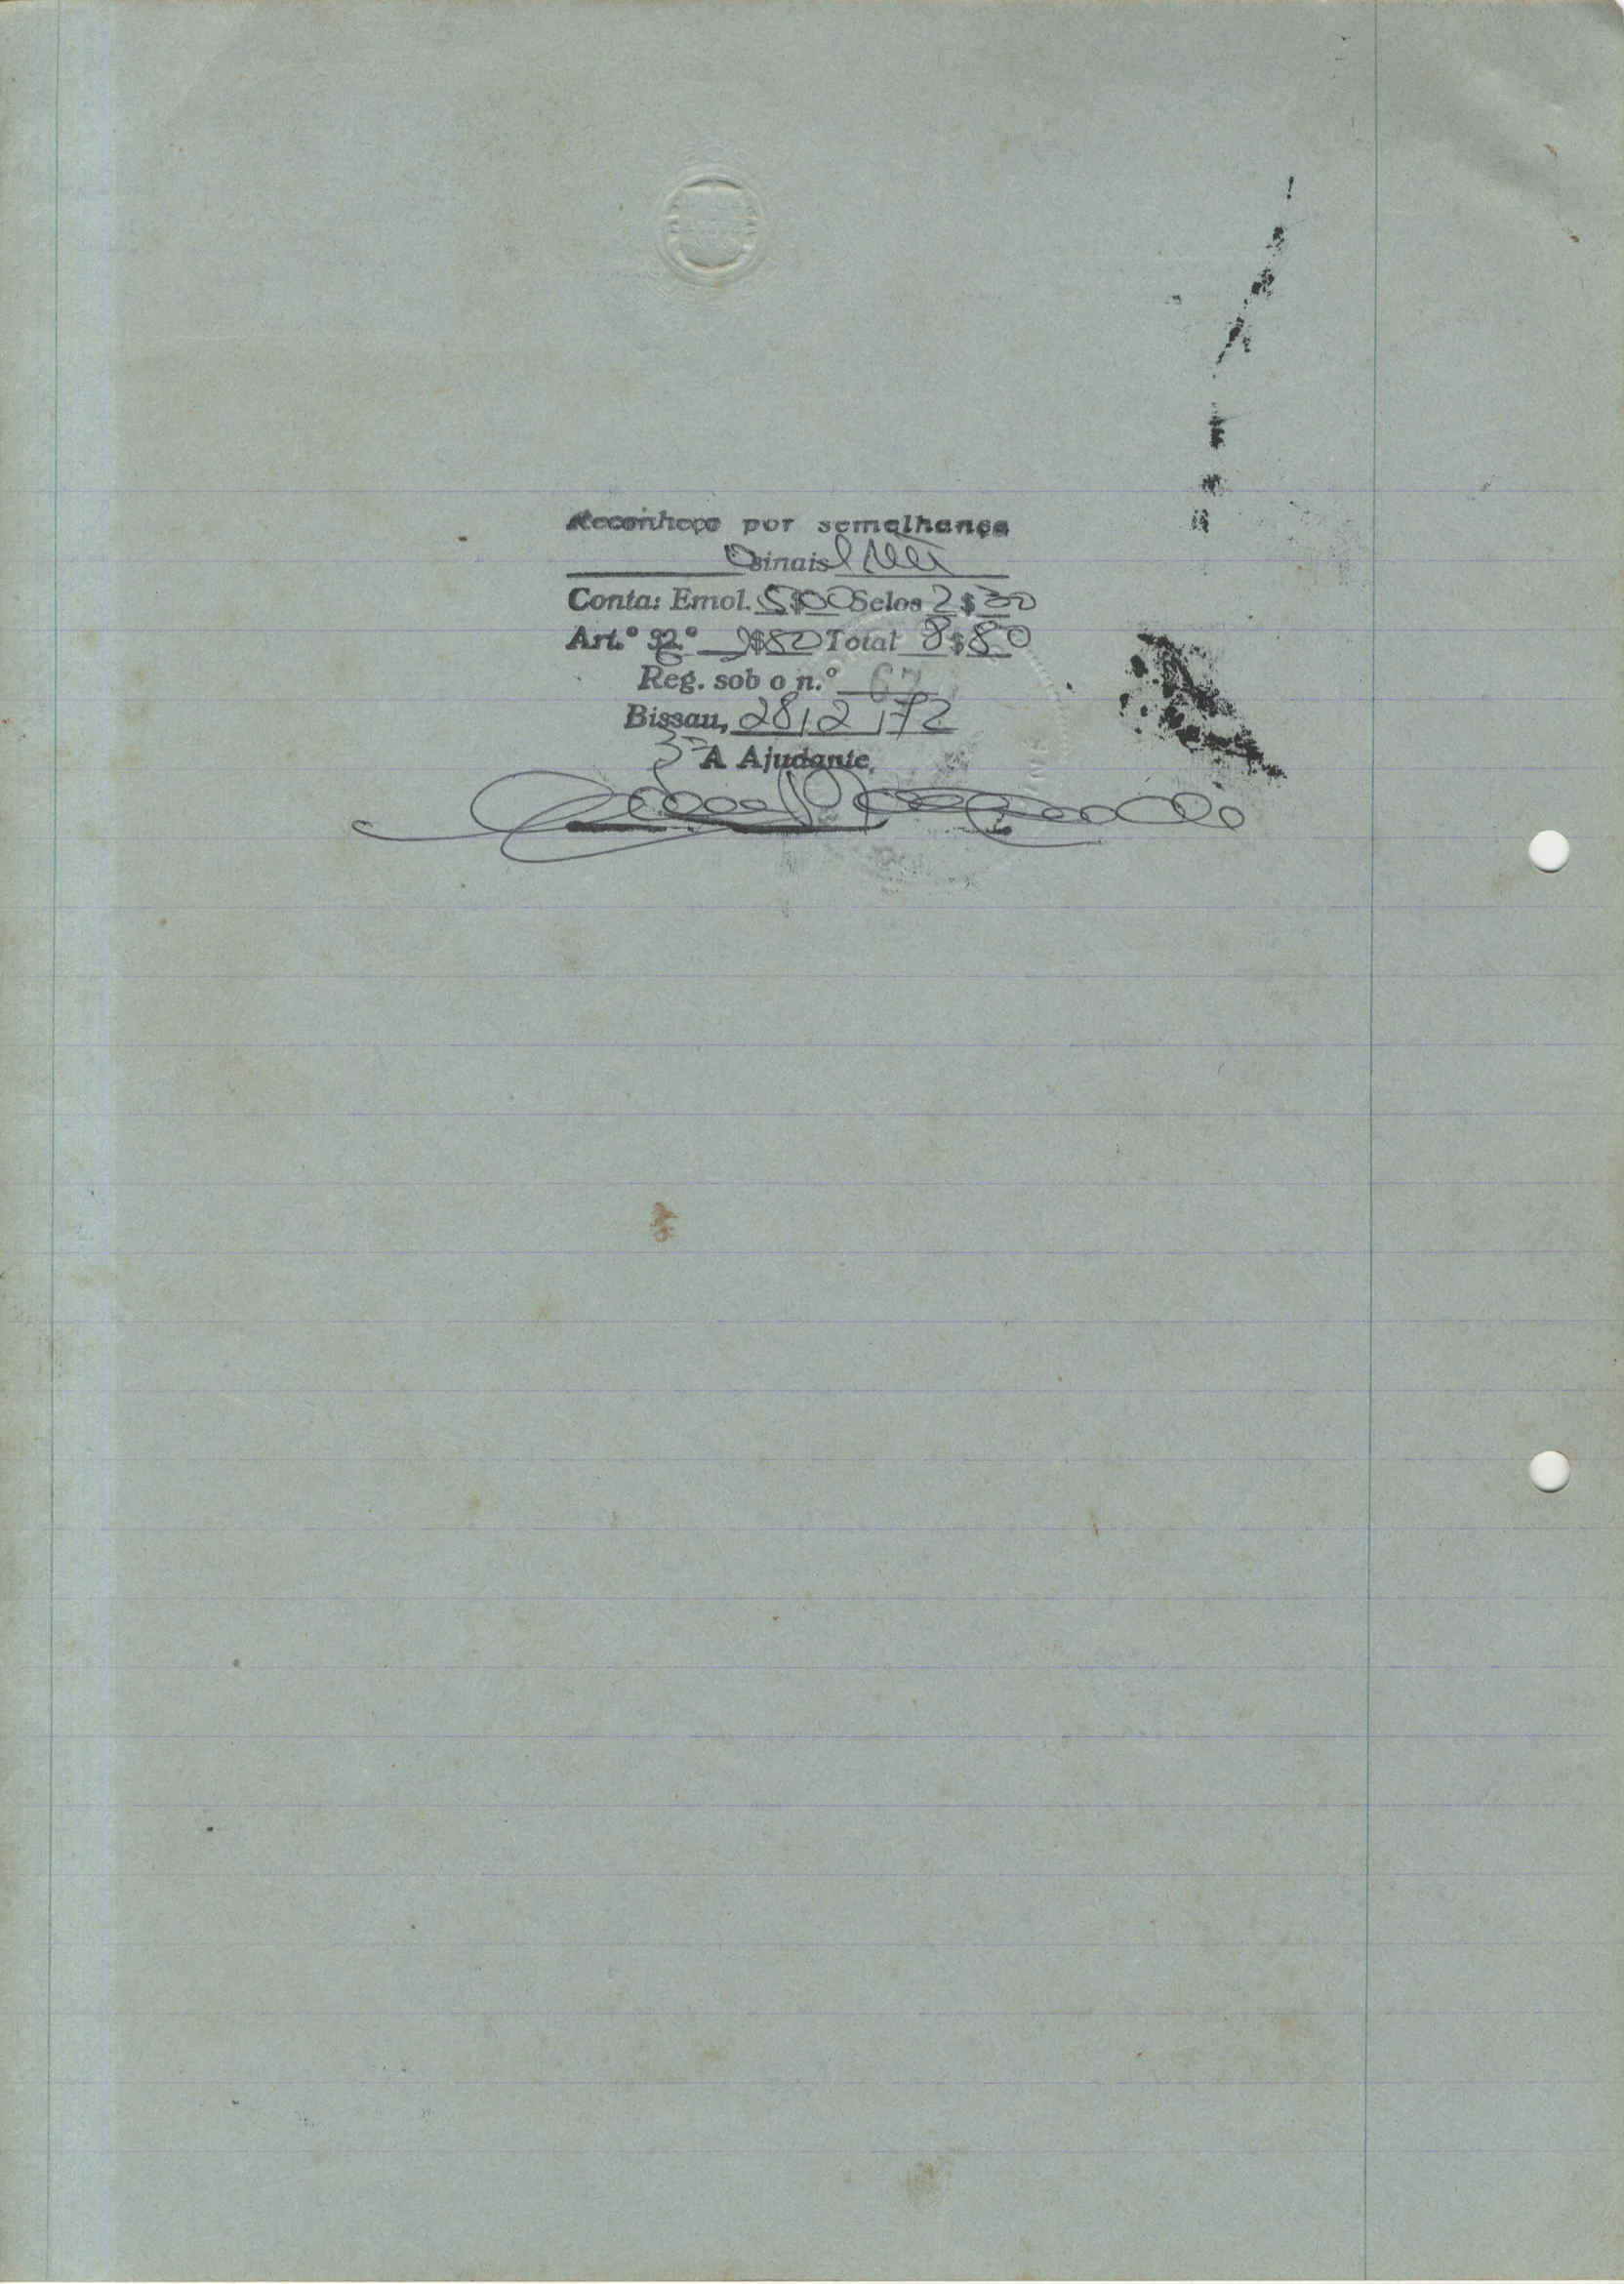 Reconheço por semelhança
O sinais
Conta: Emol. 5$00 Selos 2$30
Art.º 92.º $80 Total 8$80
Reg. sob o n.º 67
Bissau, 28/2/72
3º A Ajudante,